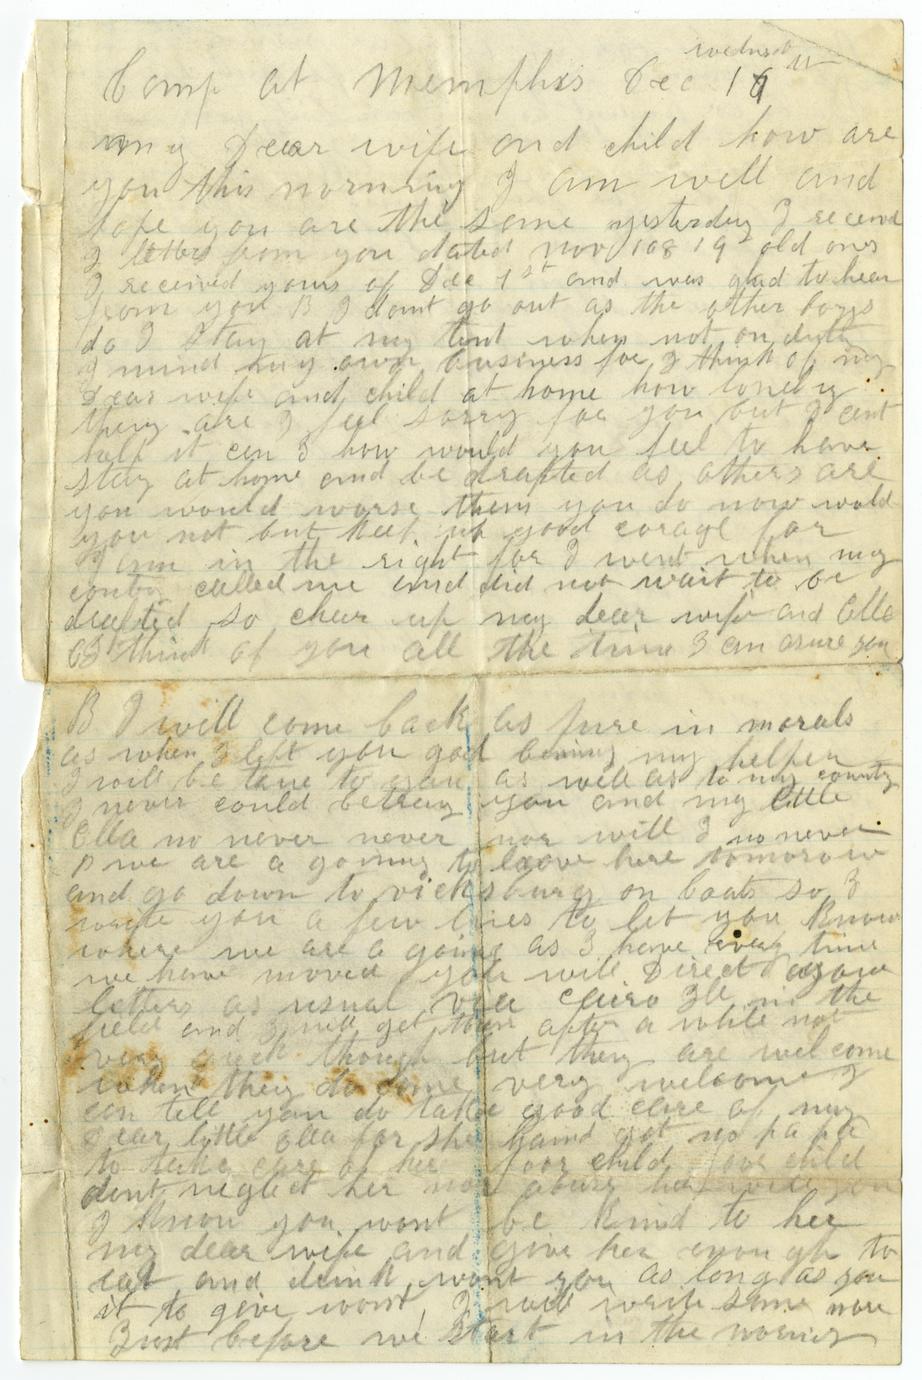 wednesd
Camp at Memphis Dec 16
my Dear wife and child how are
you this morning I am well and
hope you are the same yesterday I receivd
2 letters from you dated nov 10 & 19 old ones
I received yours of Dec 1st and was glad to hear
from you B I dont go out as the other boys
do I stay at my tent when not on duty
I mind my own business for I think of my
Dear wife and child at home how lonely
they are I feel sorry for you but I cant
help it can I how would you feel to have
stay at home and be drapted as others are
you would worse then you do now wold
you not but keep up good corage for
I am in the right for I went when my
contry called me and did not wait to be
drafted so cheer up my dear wife and Ella
I think of you all the time I can asure you
B I will come back as pure in morals
as when I left you god being my helper
I will be true to you as well as to my country
I never could betray you and my little
Ella no never never nor will I no never
B we are a going to leave here tomorow
and go down to vicksburg on boats so I
wrote you a few lines to let you know
where we are a going as I have every time
we have moved you will Direct your
letters as usual via Cairo Ill in the
field and I will get them after a while not
very quick though but they are welcome
when they do come very welcome I
can tell you do take good care of my
Dear little ella for she haint got no pa pa
to take care of her poor child poor child
dont neglect her nor abuse her will you
I know you wont be kind to her
my dear wife and give her enough to
eat and drink wont you as long as you
it to give wont I will write some more
Just before we start in the morning